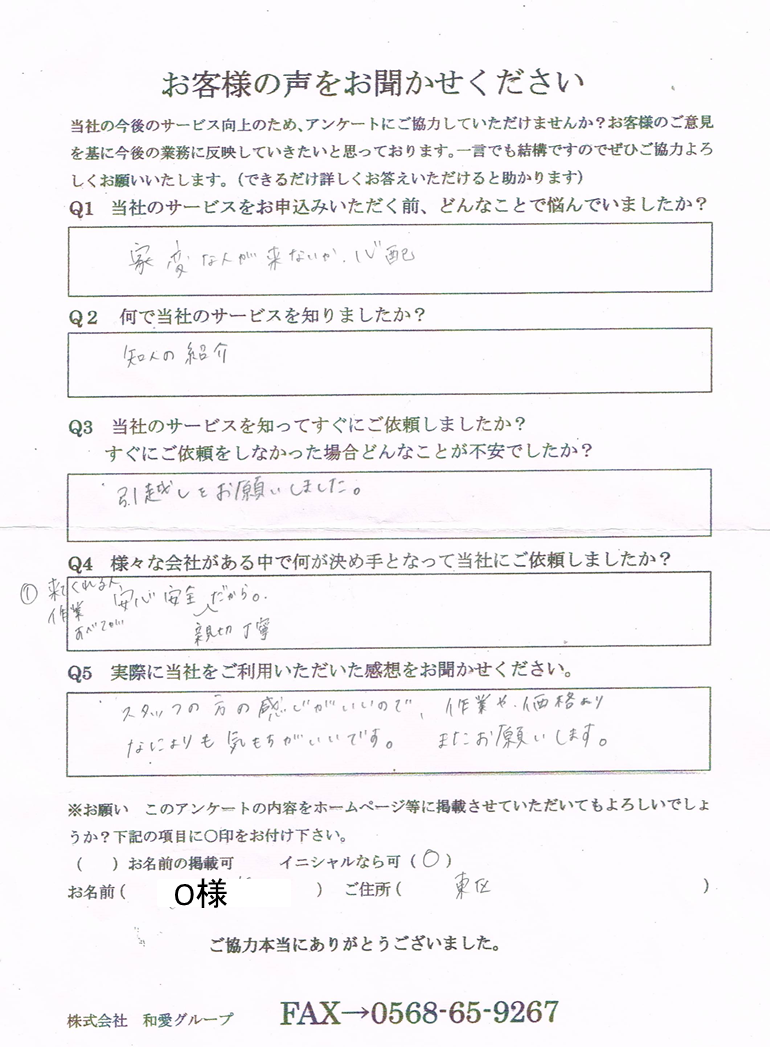 お客様の声をお聞かせください
当社の今後のサービス向上のため、アンケートにご協力していただけませんか？お客様のご意見
を基に今後の業務に反映していきたいと思っております。一言でも結構ですのでぜひご協力よろ
しくお願いいたします。（できるだけ詳しくお答えいただけると助かります）
Q1 当社のサービスをお申込みいただく前、どんなことで悩んでいましたか？
家 変な人が来ないか、心配
Q2 何で当社のサービスを知りましたか？
知人の紹介
Q3 当社のサービスを知ってすぐにご依頼しましたか？
すぐにご依頼をしなかった場合どんなことが不安でしたか？
引越しをお願いしました。
Q4 様々な会社がある中で何が決め手となって当社にご依頼しましたか？
① 来てくれる人、
作業
すべてが
安心 安全 だから。
親切 丁寧
Q5 実際に当社をご利用いただいた感想をお聞かせください。
スタッフの方の感じがいいので、作業や、価格より
なによりも気もちがいいです。 またお願いします。
※お願い このアンケートの内容をホームページ等に掲載させていただいてもよろしいでしょ
うか？下記の項目に〇印をお付け下さい。
（ ）お名前の掲載可 イニシャルなら可（〇）
お名前（ O様 ） ご住所（ 東区 ）
ご協力本当にありがとうございました。
株式会社 和愛グループ FAX→0568-65-9267